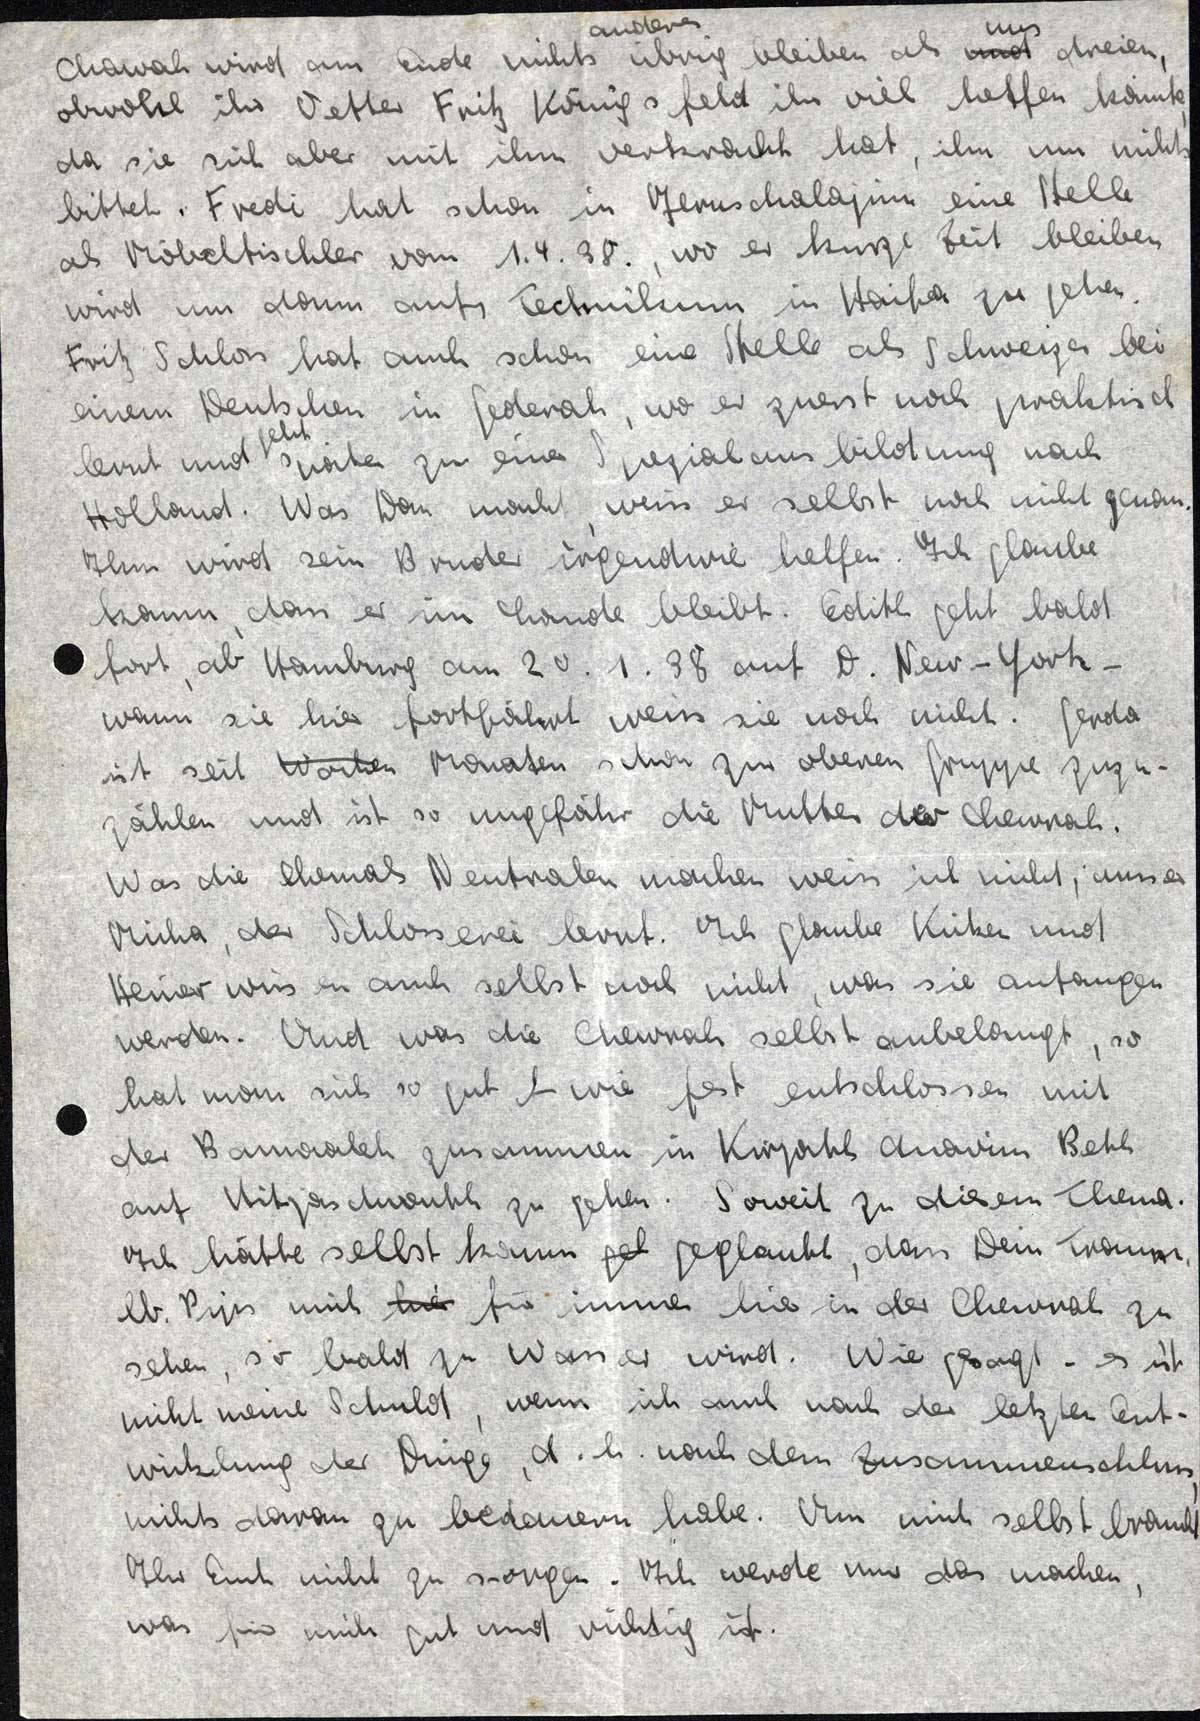 Chawah wird am Ende nichts anderes übrig bleiben als uns dreien,
obwohl ihr Vetter Fritz Königsfeld ihr viel helfen könnte,
da sie sich aber mit ihm verkracht hat, ihn um nichts
bittet. Fredi hat schon in Jeruschalajim eine Stelle
als Möbeltischler vom 1.4.38., wo er kurze Zeit bleiben
wird um dann aufs Technikum in Haifa zu gehen.
Fritz Schloss hat auch schon eine Stelle als Schweizer bei
einem Deutschen in Gederah, wo er zuerst noch praktisch
lernt und geht später zu einer Spezialausbildung nach
Holland. Was Dan macht, weiss er selbst noch nicht genau.
Ihm wird sein Bruder irgendwie helfen. Ich glaube
kaum, dass er im Lande bleibt. Edith geht bald
fort, ab Hamburg am 20.1.38 auf D. New-York -
wann sie hier fortfährt weiss sie noch nicht. Gerda
ist seit Wochen Monaten schon zur oberen Gruppe zuzu-
zählen und ist so ungefähr die Mutter der Chewrah.
Was die ehemals Neutralen machen weiss ich nicht, ausser
Micha, der Schlosserei lernt. Ich glaube Küken und
Heiner wissen auch selbst noch nicht, was sie anfangen
werden. Und was die Chewrah selbst anbelangt, so
hat man sich so gut wie fest entschlossen mit
der Bamaaleh zusammen in Kirjath Anavim Beth
auf Hitjaschwuth zu gehen. Soweit zu diesem Thema.
Ich hätte selbst kaum geglaubt, dass Dein Traum,
lb. Pips mich hier für immer hier in der Chewrah zu
sehen, so bald zu Wasser wird. Wie gesagt - es ist
nicht meine Schuld, wenn ich auch nach der letzten Ent-
wicklung der Dinge, d.h. nach dem Zusammenschluss,
nichts daran zu bedauern habe. Um mich selbst braucht
Ihr Euch nicht zu sorgen. Ich werde nur das machen,
was für mich gut und richtig ist.